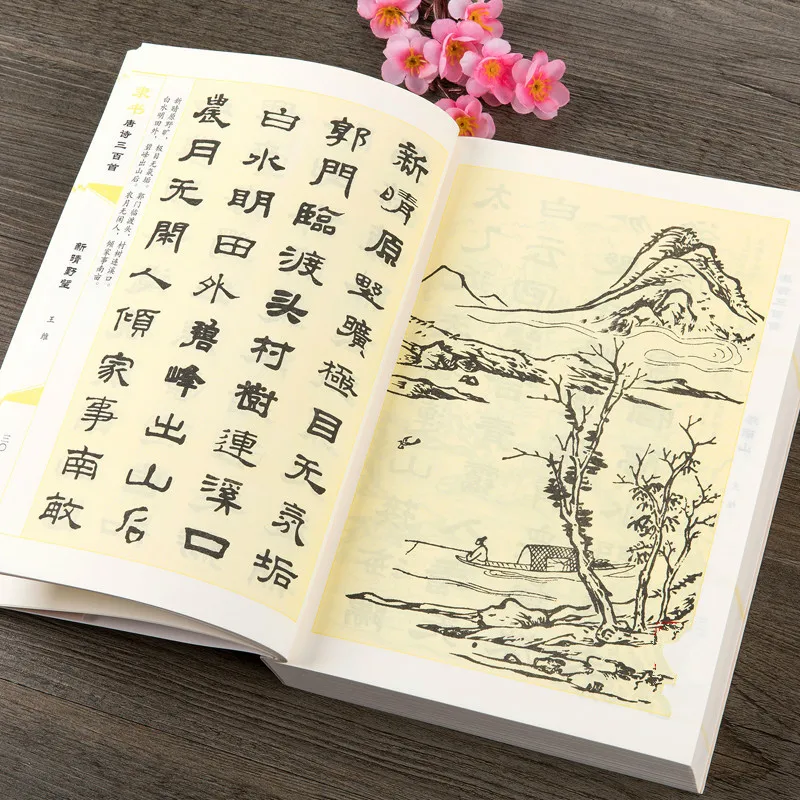 新晴原野曠極目无氛垢
郭門臨渡头村樹連溪口
白水明田外碧峰出山后
農月无閑人傾家事南畝
新晴原野旷，极目无氛垢。郭门临渡头，村树连溪口。
白水明田外，碧峰出山后。农月无闲人，倾家事南亩。
隶书 唐诗三百首
新晴野望 王维
三〇